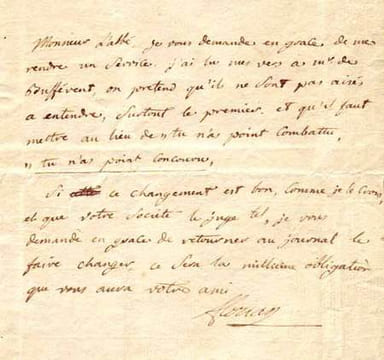 Monsieur L'abbé, je vous demande en grace de me
rendre un Service. j'ai lu mes vers a mr. de
Bouffévent, on pretend qu'il ne sont pas aisés
a entendre, surtout le premier. et qu'il faut
mettre au lieu de » tu n'a point Combattu,
» tu n'as point concouru,
Si ce changement est bon, comme je le Crois,
et que votre societé le juge tel, je vous
demande en grace de retourner au journal le
faire changer, ce Sera la millieme obligation
que vous aura votre ami
florian